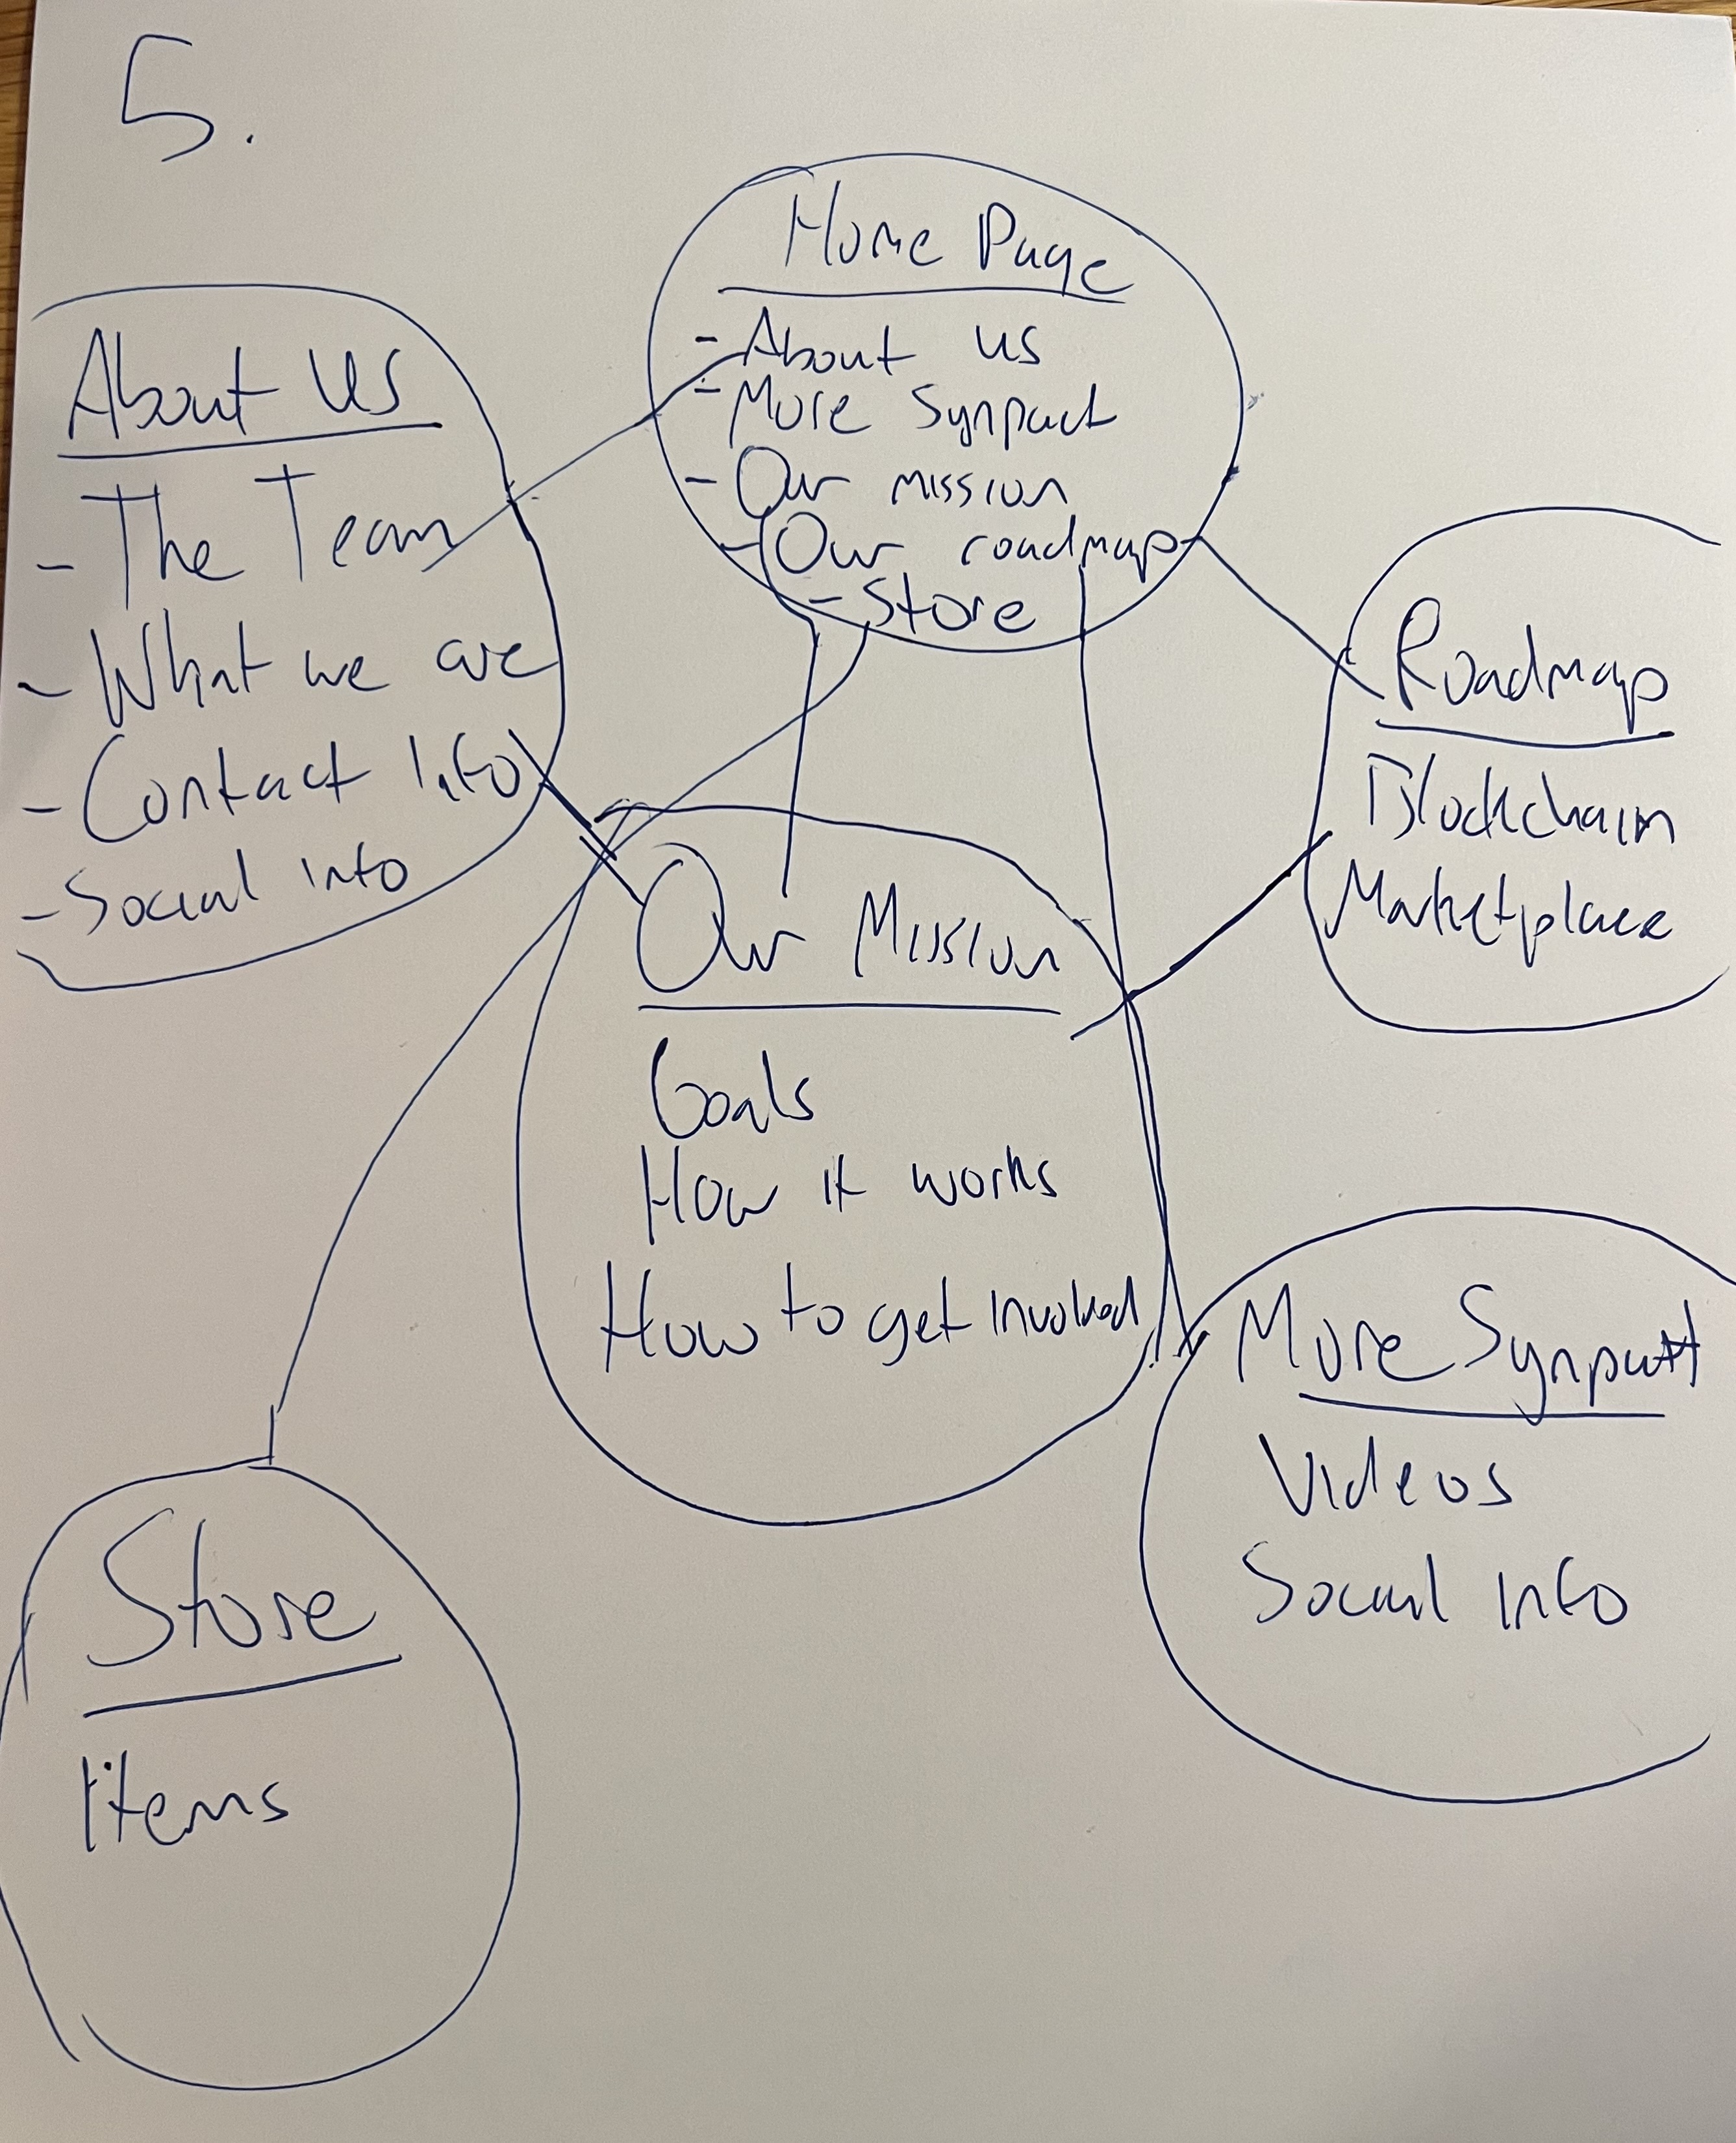 5.
Home Page
- About us
- More Synpact
- Our mission
- Our roadmap
- Store
About Us
- The Team
- What we are
- Contact Info
- Social info
Roadmap
Blockchain
Marketplace
Our Mission
Goals
How it works
How to get involved
More Synpact
Videos
Social Info
Store
Items